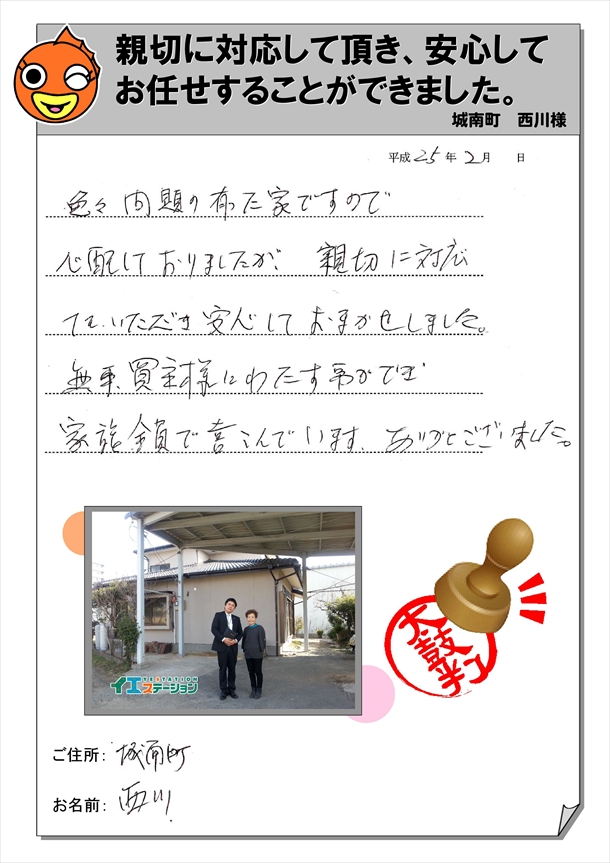 親切に対応して頂き、安心して
お任せすることができました。
城南町　西川様
平成 25 年 2 月　　日
色々問題の有った家ですので
心配しておりましたが、親切に対応
していただき安心しておまかせしました。
無事、買主様にわたす事ができ
家族全員で喜こんでいます、ありがとうございました。
IESTATION
イエステーション
太鼓判
ご住所: 城南町
お名前: 西川